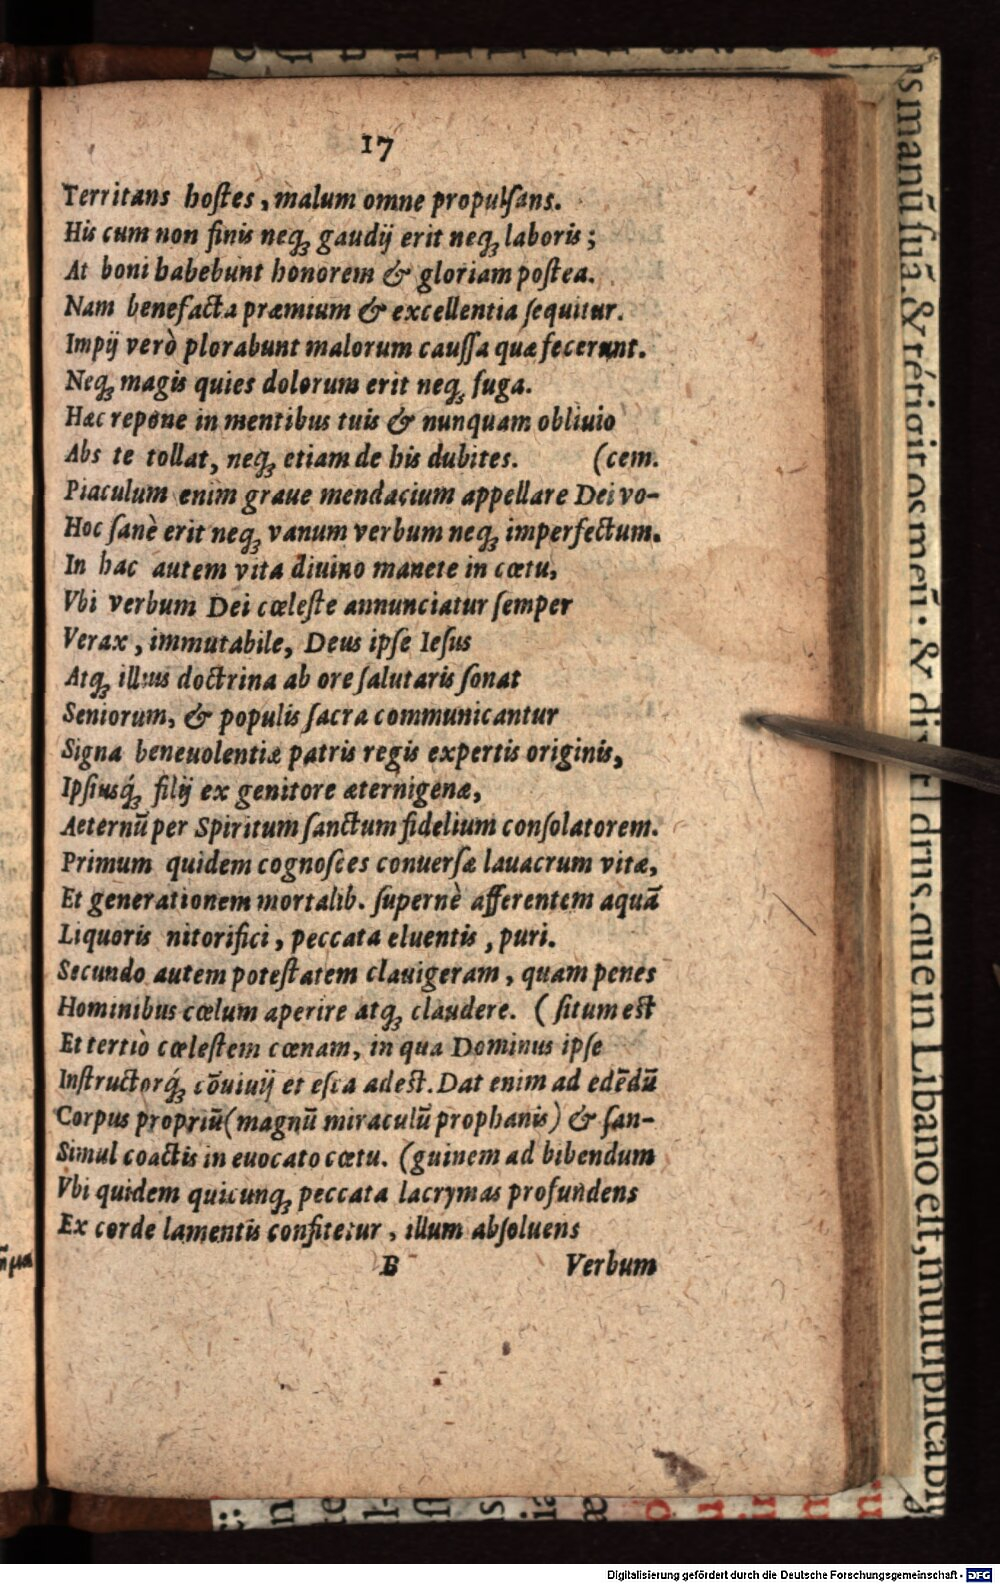 17
Territans hoſtes, malum omne propulſans.
His cum non finis neqꝫ gaudij erit neqꝫ laboris;
At boni habebunt honorem & gloriam poſtea.
Nam benefacta præmium & excellentia ſequitur.
Impij verò plorabunt malorum cauſſa quæ fecerunt.
Neqꝫ magis quies dolorum erit neqꝫ fuga.
Hæc repone in mentibus tuis & nunquam obliuio
Abs te tollat, neqꝫ etiam de his dubites. (cem.
Piaculum enim graue mendacium appellare Dei vo-
Hoc ſanè erit neqꝫ vanum verbum neqꝫ imperfectum.
In hac autem vita diuino manete in cœtu,
Vbi verbum Dei cœleſte annunciatur ſemper
Verax, immutabile, Deus ipſe Ieſus
Atqꝫ illius doctrina ab ore ſalutaris ſonat
Seniorum, & populis ſacra communicantur
Signa beneuolentiæ patris regis expertis originis,
Ipſiusq́ꝫ filij ex genitore æternigenæ,
Aeternū per Spiritum ſanctum fidelium conſolatorem.
Primum quidem cognoſces conuerſæ lauacrum vitæ,
Et generationem mortalib. ſupernè afferentem aquā
Liquoris nitorifici, peccata eluentis, puri.
Secundo autem poteſtatem clauigeram, quam penes
Hominibus cœlum aperire atqꝫ claudere. (ſitum est
Et tertiò cœleſtem cœnam, in qua Dominus ipſe
Inſtructorq́ꝫ cōuiuij et eſca adest. Dat enim ad edēdū
Corpus propriū (magnū miraculū prophanis) & ſan-
Simul coactis in euocato cœtu. (guinem ad bibendum
Vbi quidem quicunqꝫ peccata lacrymas profundens
Ex corde lamentis confitetur, illum abſoluens
B Verbum
Digitalisierung gefördert durch die Deutsche Forschungsgemeinschaft - DFG